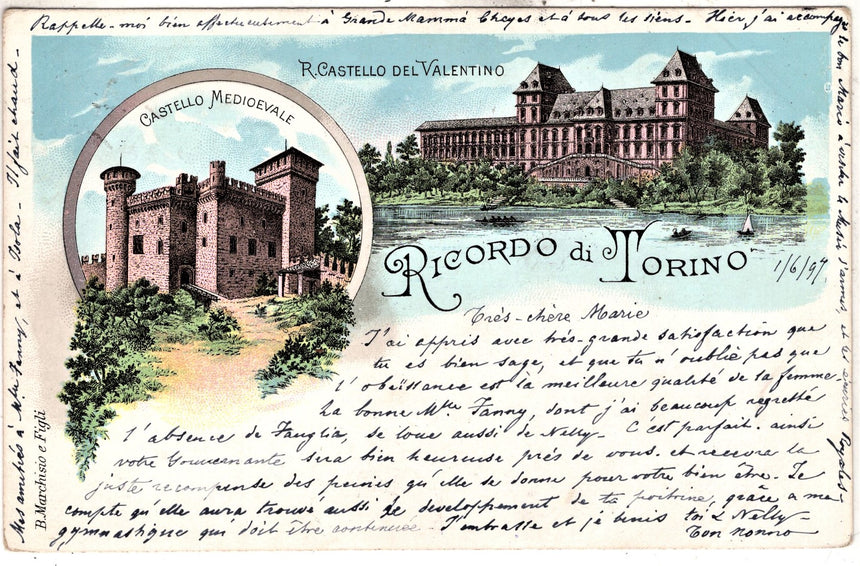 Rappelle-moi bien affectueusement à Grande Mammá Cheyes et à tous les siens - Hier, j'ai accompagné
le bon Mario à visiter le Musée d'armes, et le
R. CASTELLO DEL VALENTINO
CASTELLO MEDIOEVALE
RICORDO di TORINO
1/6/97
Très-chère Marie
J'ai appris avec très-grande satisfaction que
tu es bien sage, et que tu n'oublie pas que
l'obeïssance est la meilleure qualité de la femme.
La bonne Mlle Fanny, dont j'ai beaucoup regretté
l'absence de Fauglia, se loue aussi de Nelly - C'est parfait. ainsi
votre Gouvernante sera bien heureuse près de vous. et recevra la
juste recompense des peines qu'elle se donne pour votre bien être. Je
compte qu'elle aura trouvé aussi le developpement de ta poitrine, grâce a me
gymnastique qui doit être continuée. J'embrasse et je benis toi & Nelly-
Ton nonno
Mes amitiés à Mlle Fanny, et à Isola - Il fait chaud -
B. Marchisio e Figli